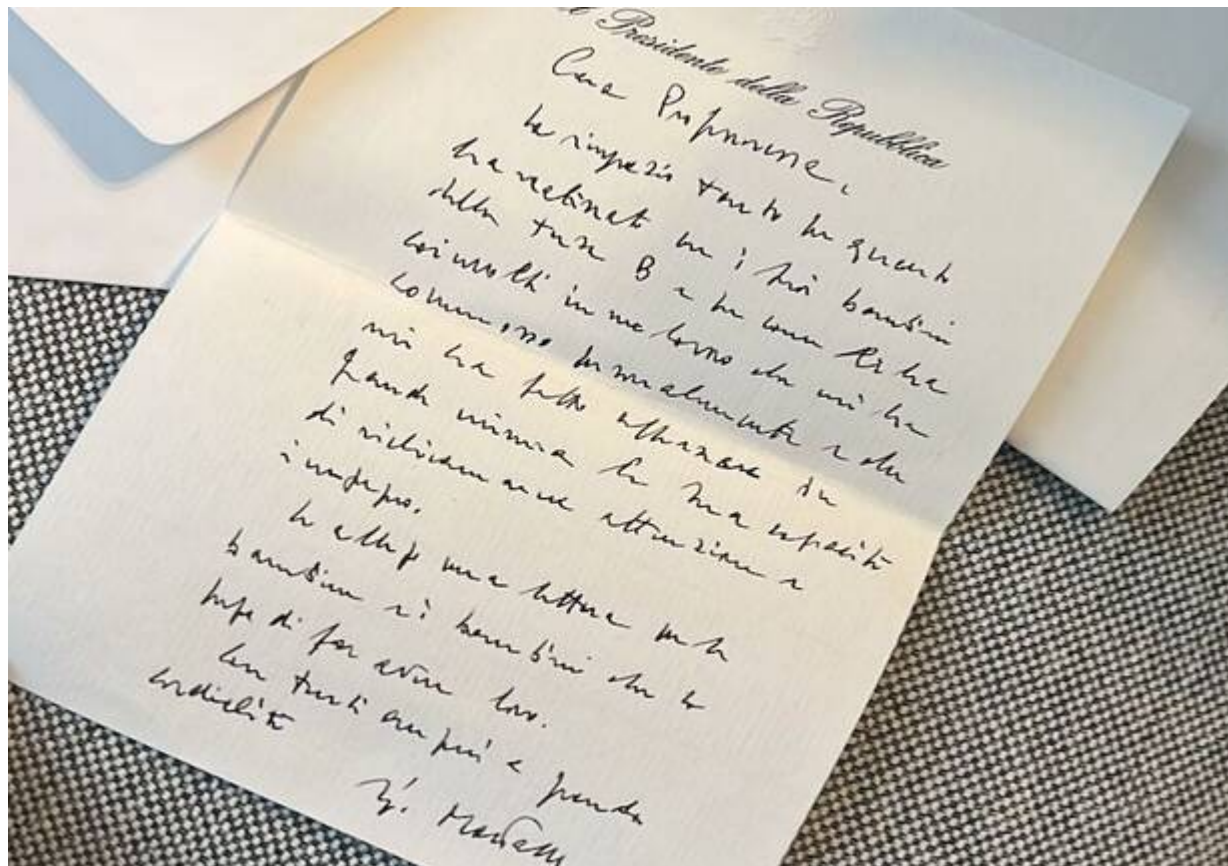 Il Presidente della Repubblica
Cara Professoressa,
La ringrazio tanto per quanto
ha realizzato con i suoi bambini
della terza B e per come li ha
coinvolti in un lavoro che mi ha
commosso personalmente e che
mi ha fatto apprezzare in
grande misura la sua capacità
di richiamarne attenzione e
impegno.
Le allego una lettera per le
bambine e i bambini che la
prego di far avere loro.
Con tanti auguri e grande
cordialità